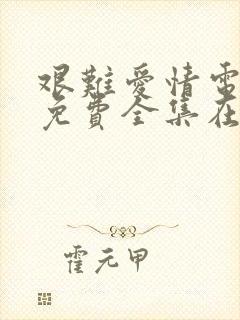 艰難愛情電
免費全集在
霍元甲